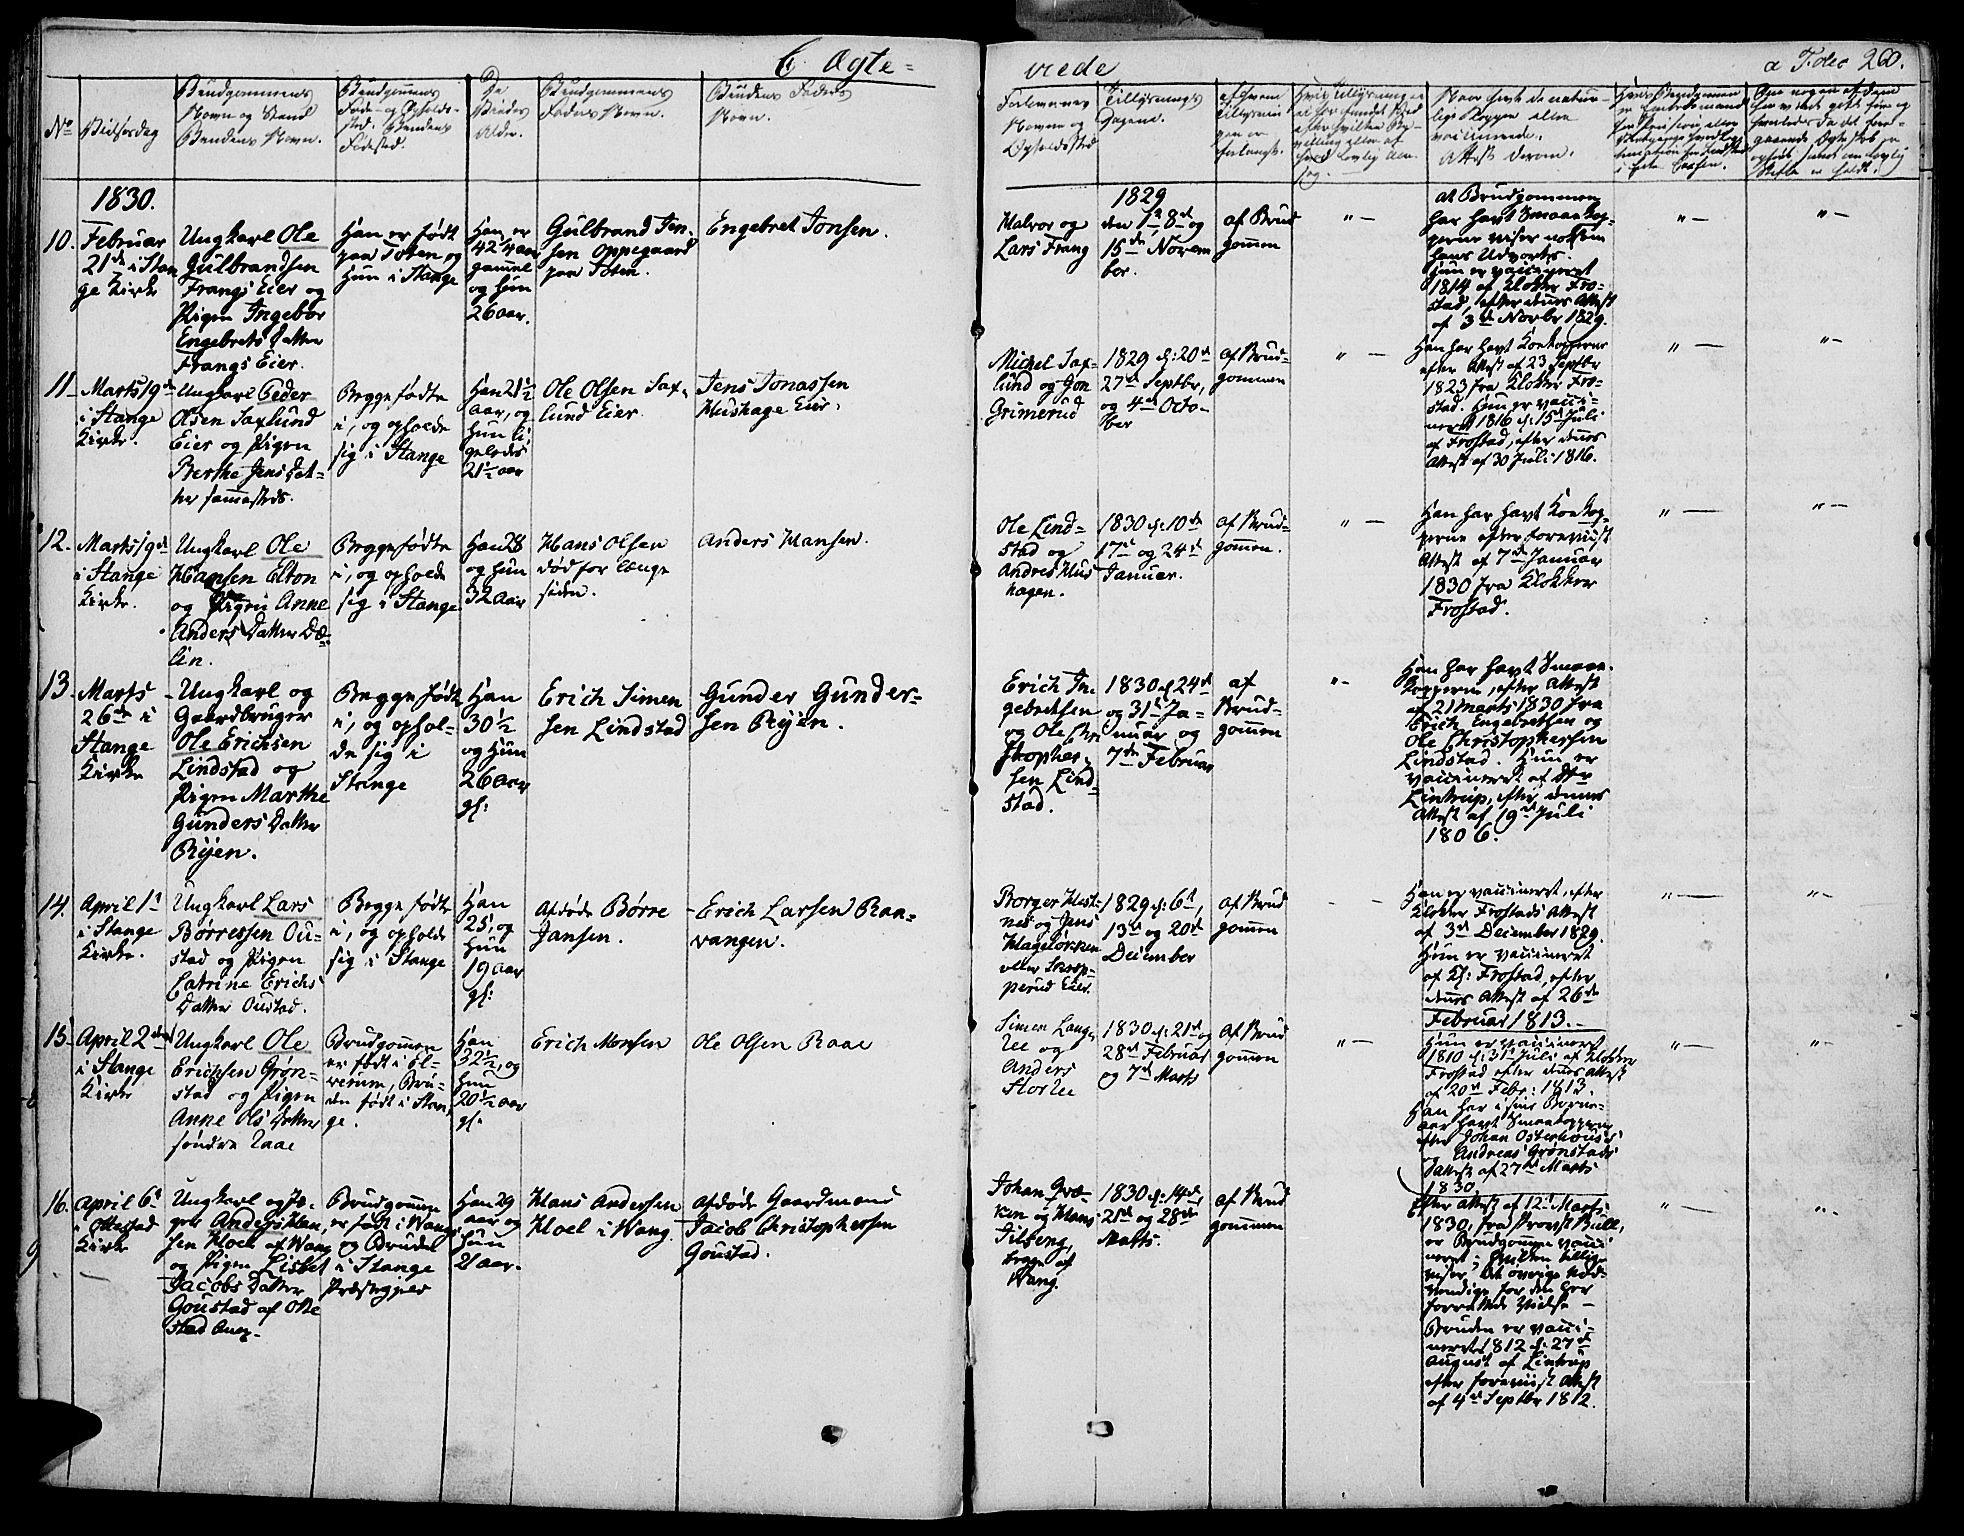 6. Ægte=
viede
a T. dec 260.
No
Vielsesdag
Brudgommens
Navn og Stand
Brudens Navn.
Brudgommens
Føde- og Opholds-
sted. Brudens
Fødested.
De
Viedes
Alder.
Brudgommens
Faders Navn.
Brudens Faders
Navn.
Forlovernes
Navne og
Opholdssted
Tillysnings
Dagene.
af hvem
Tillysnin
gen er
forlangt.
Naar havt de natur-
lige Kopper eller
vaccinerede.
Attest derom.
1830.
1829
10.
Februar
21de i Stan
ge Kirke
Ungkarl Ole
Gulbrandsen
Frangs Eier og
Pigen Ingebor
Engebrets Datter
Frangs Eier.
Han er født
paa Toten og
Hun i Stange
Han er
42 1/4 aar
gammel
og Hun
26 aar.
Gulbrand Jen-
sen Oppegaard
paa Toten.
Engebret Jonsen.
Halvor og
Lars Frang
den 1ste 8de og
15de Novem
ber.
af Brud
gommen
" —
at Brudgommen
har havt Smaakop-
perne viser noksom
hans Udvortes.
Hun er vaccineret
1814 af Klokker Fro-
stad, efter dennes Attest
af 3de Novbr 1829.
" —
" —
11.
Marts 19de
i Stange
Kirke.
Ungkarl Peder
Olsen Saxlund
Eier og Pigen
Berthe Jens Dat-
ter sammesteds.
Begge fødte
i, og opholde
sig i Stange
Han 21 1/2
aar, og
Hun li
geledes
21 1/2 aar
Ole Olsen Sax-
lund Eier.
Jens Jonassen
Hushage Eier.
Michel Sax-
lund og Gon
Grimerud
1829 d: 20de
27de Septbr,
og 4de Octo-
ber
af Brud-
gommen
" —
Han har havt Koekopperne
efter Attest af 23 Septbr
1823 fra Klokker Fro-
stad. Hun er vacci-
neret 1816 d: 15de Juli
af Frostad, efter dennes
Attest af 30 Juli 1816.
" —
" —
12.
Marts 19de
i Stange
Kirke.
Ungkarl Ole
Hansen Elton
og Pigen Anne
Anders Datter Dæ-
lin.
Begge fødte
i, og opholde
sig i Stange
Han 28
og Hun
32 Aar
Hans Olsen
død for længe
siden.
Anders Hansen.
Ole Lind-
stad og
Andres Hus
hagen.
1830 d: 10de
17de og 24de
Januar.
af Brud-
gommen.
" —
Han har havt Koekop-
perne efter foreviist
Attest af 7de Januar
1830 fra Klokker
Frostad.
" —
" —
13.
Marts
26de i
Stange
Kirke
Ungkarl og
Gaardbruger
Ole Erichsen
Lindstad og
Pigen Marthe
Gunders Datter
Ryen.
Begge fødte
i, og ophol-
de sig i
Stange
Han
30 1/2
og Hun
26 aar
gl:
Erich Simen
sen Lindstad
Gunder Gunder-
sen Ryen.
Erich In
gebretsen
og Ole Chri
stopher-
sen Lind-
stad.
1830 d 24de
og 31te Ja-
nuar og
7de Februar
af
Brud-
gommen
" -
Han har havt Smaae-
kopperne, efter Attest
af 21 Marts 1830 fra
Erich Engebretsen og
Ole Christophersen
Lindstad. Hun er
vaccineret af Hr
Lintrup, efter dennes
Attest af 19de Juli
1806.
14.
April 1ste
i Stange
Kirke.
Ungkarl Lars
Børresen Ou-
stad og Pigen
Catrine Erichs
Datter Oustad.
Begge fødte
i, og opholde
sig i Stange
Han
25, og
Hun
19 aar
gl:
Afdøde Børre
Jansen.
Erich Larsen Raa-
vangen.
Borger Hest-
nes og Jens
Hageløkken
eller Skrep-
perud Eier.
1829 d: 6te,
13de og 20de
December
af Brud
gommen
Han er vaccineret, efter
Klokker Frostads Attest
af 3de December 1829.
Hun er vaccineret
af Kl: Frostad, efter
dennes Attest af 26de
Februar 1813.
" —
" -
15.
April 2den
i Stange
Kirke
Ungkarl Ole
Erichsen Grøn-
stad og Pigen
Anne Ols Datter
søndre Raae
Brudgommen
er født i El-
verum, Bru-
den født i Stan-
ge.
Han
32 1/2, og
Hun
20 1/2 aar
gl:
Erich Monsen
Ole Olsen Raae
Simen Lange
Lee og
Anders
Stor Lee
1830 d: 21de og
28de Februar
og 7de Marts
af Brud
gommen
" —
Hun er vaccineret
1810 d: 31te Juli af Klokker
Frostad efter dennes Attest
af 20de Febr: 1813
Han har i sine Barne-
aar havt Smaakopperne
efter Johan Osterhouses
og Andreas Grønstads
Attest af 27de Marts
1830
" —
" -
16.
April 6te
i Ottestad
Kirke
Ungkarl og Jæ-
ger Anders Han-
sen Hoel af Wang
og Pigen Lisbet
Jacobs Datter
Goustad af Otte
stad Anex.
Brudgommen
er født i Wang
og Bruden
i Stange
Præstegjeld
Han 29
aar og
Hun
21 aar.
Hans Andersen
Hoel i Wang.
Afdøde Gaardmand
Jacob Christophersen
Goustad.
Johan Græ-
ken og Hans
Tilberg,
begge af
Wang.
1830 d: 14de,
21de og 28de
Marts.
af Brud
gommen
Efter Attest af 12te Marts
1830, fra Provst Bull,
er Brudgommen vacci
neret; hvilken tillige
viser, det øvrige Nød-
vendige for den her
forrettede Vielse —
Bruden er vacci-
neret 1812 d: 27de
August af Lintrup
efter foreviist Attest
af 4de Septbr 1812.
" —
" -